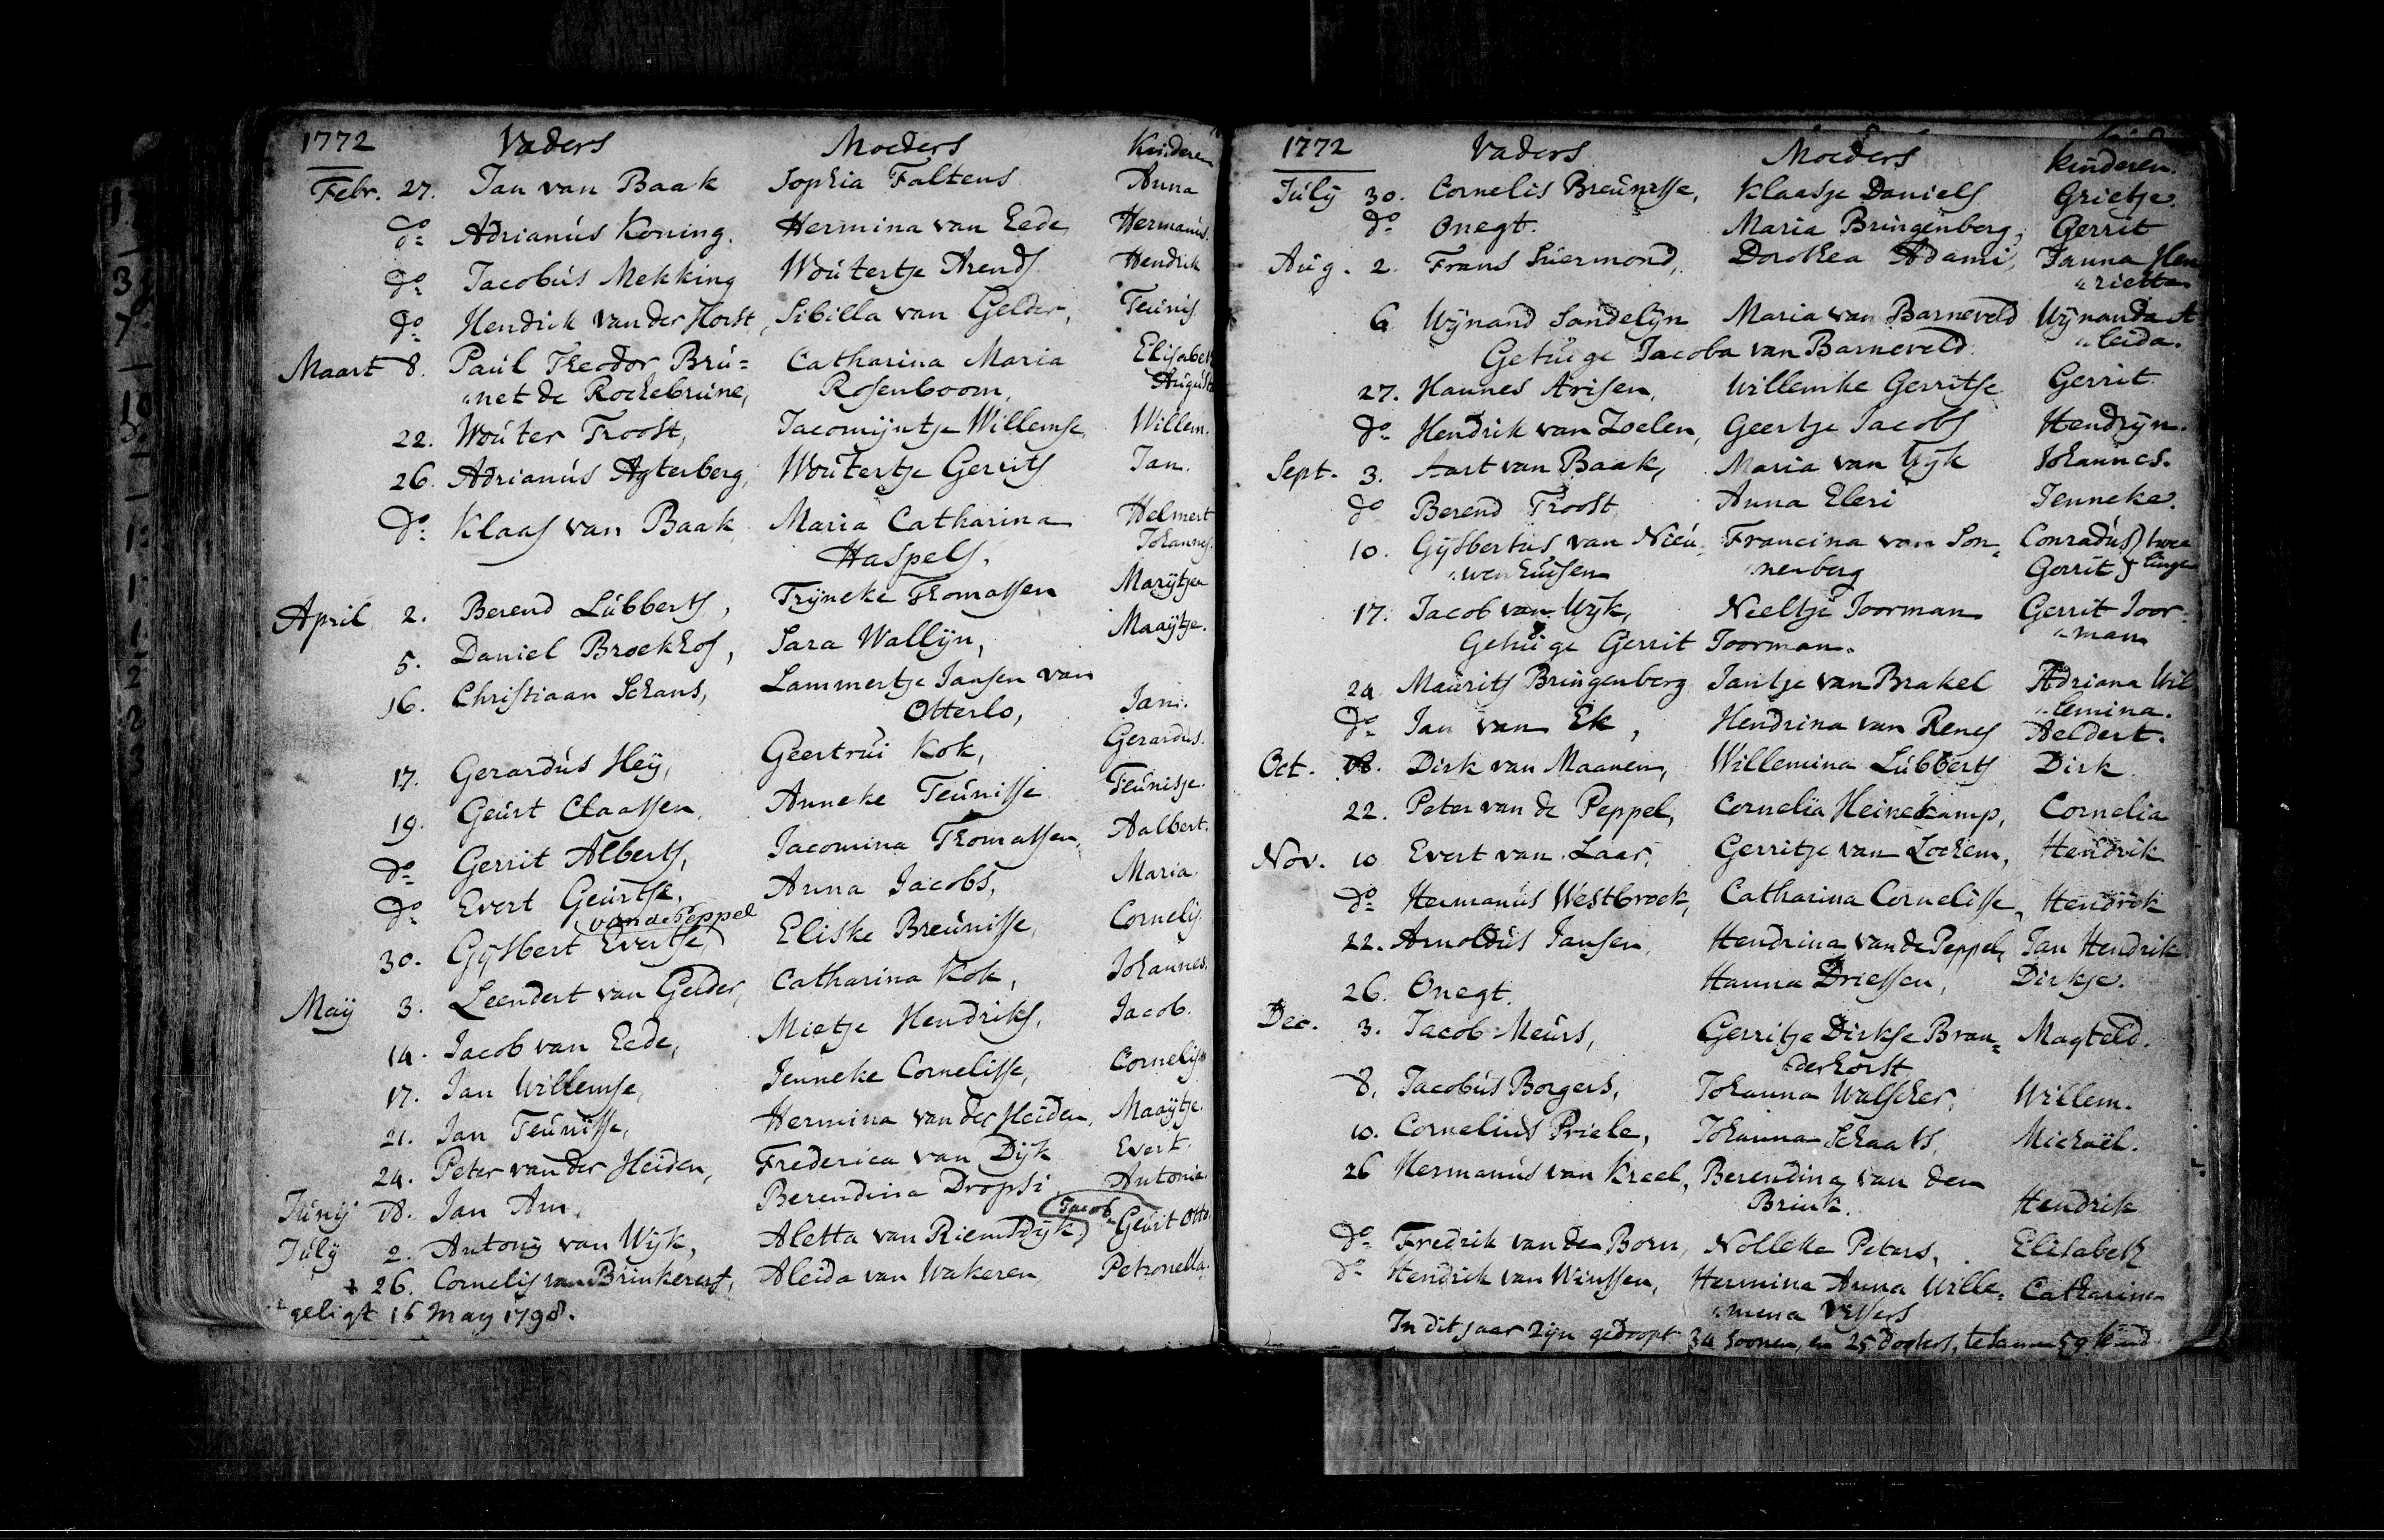 1772 Vaders Moeders Kinderen
Febr. 27. Jan van Baak Sophia Faltens Anna
do Adrianus Koning. Hermina van Eede Hermanus.
do Jacobus Mekking Woutertje Arends Hendrik
do Hendrik van der Horst, Sibilla van Gelder, Teunis
Maart 8. Paul Theodor Bru= Catharina Maria Elisabeth
"net de Rochebrune, Rosenboom, August
22. Wouter Troost, Jacomijntje Willemse, Willem.
26. Adrianus Agterberg, Woutertje Gerrits Jan.
do Klaas van Baak, Maria Catharina Helmert
Haspels. Johannes.
April 2. Berend Lubberts, Trijneke Thomassen Marijtjen
5. Daniel Broekhof, Sara Wallijn, Maaijtje.
16. Christiaan Schans, Lammertje Jansen van
Otterlo, Jan.
17. Gerardus Heij, Geertrui Kok, Gerardus.
19. Geurt Claassen, Anneke Teunisse Teunisje.
do Gerrit Alberts, Jacomina Thomassen, Aalbert.
do Evert Geurtse, Anna Jacobs, Maria.
van de Peppel
30. Gijsbert Evertse, Eliske Breunisse, Cornelis.
Maij 3. Leendert van Gelder, Catharina Kok, Johannes.
14. Jacob van Eede, Mietje Hendriks, Jacob.
17. Jan Willemse, Jenneke Cornelisse, Cornelis
21. Jan Teunisse, Hermina van der Heiden, Maaijtje.
24. Peter van der Heiden, Frederica van Dijk Evert.
Junij 18. Jan Am, Berendina Dropsi Antonie.
Jacob
Julij 2. Antonij van Wijk, Aletta van Riemsdijk, Geurt Otto.
+ 26. Cornelis van Brinkerest, Aleida van Wakeren, Petronella.
+ geligt 16 May 1798.
1772 Vaders Moeders Kinderen.
Julij 30. Cornelis Breunesse, Klaasje Daniels Grietje.
do Onegt. Maria Bringenberg, Gerrit
Aug. 2. Frans Suermond, Dorothea Adami, Janna Hen
"rietta
6 Wijnand Sandelijn Maria van Barneveld Wijnanda A
Getuige Jacoba van Barneveld. "leida.
27. Hannes Arisen, Willemke Gerritse Gerrit.
do Hendrik van Zoelen, Geertje Jacobs Hendrijn.
Sept. 3. Aart van Baak, Maria van Wijk Johannes.
do Berend Troost Anna Eleri Jenneke.
10. Gijsbertus van Nieu Francina van Son= Conradus } twee
"wenhuisen "nenberg Gerrit } lingen
17. Jacob van Wijk, Neeltje Joorman Gerrit Joor=
Getuige Gerrit Joorman. "man
24 Maurits Bringenberg Jantje van Brakel Adriana Wil
"lemina.
do Jan van Ek, Hendrina van Renes Aeldert.
Oct. 18. Dirk van Maanen, Willemina Lubberts Dirk
22. Peter van de Peppel, Cornelia Heinekamp, Cornelia
Nov. 10 Evert van Laar, Gerritje van Lochem, Hendrik
do Hermanus Westbroek, Catharina Cornelisse, Hendrik
22. Arnoldus Jansen, Hendrina van de Peppel, Jan Hendrik
26. Onegt. Hanna Driessen, Dirkje.
Dec. 3. Jacob Meurs, Gerritje Dirkse Bran= Magteld.
"derhorst
8. Jacobus Borgers, Johanna Walscher, Willem.
10. Cornelius Priele, Johanna Schaats, Michaël.
26 Hermanus van Kreel, Berendina van den
Brink. Hendrik
do Fredrik van den Born, Nolleke Peters, Elisabeth
do Hendrik van Winssen, Hermina Anna Wille= Catharina
"mena Vissers
In dit jaar zijn gedoopt 34 soonen, en 25 dogters, te samen 59 kind